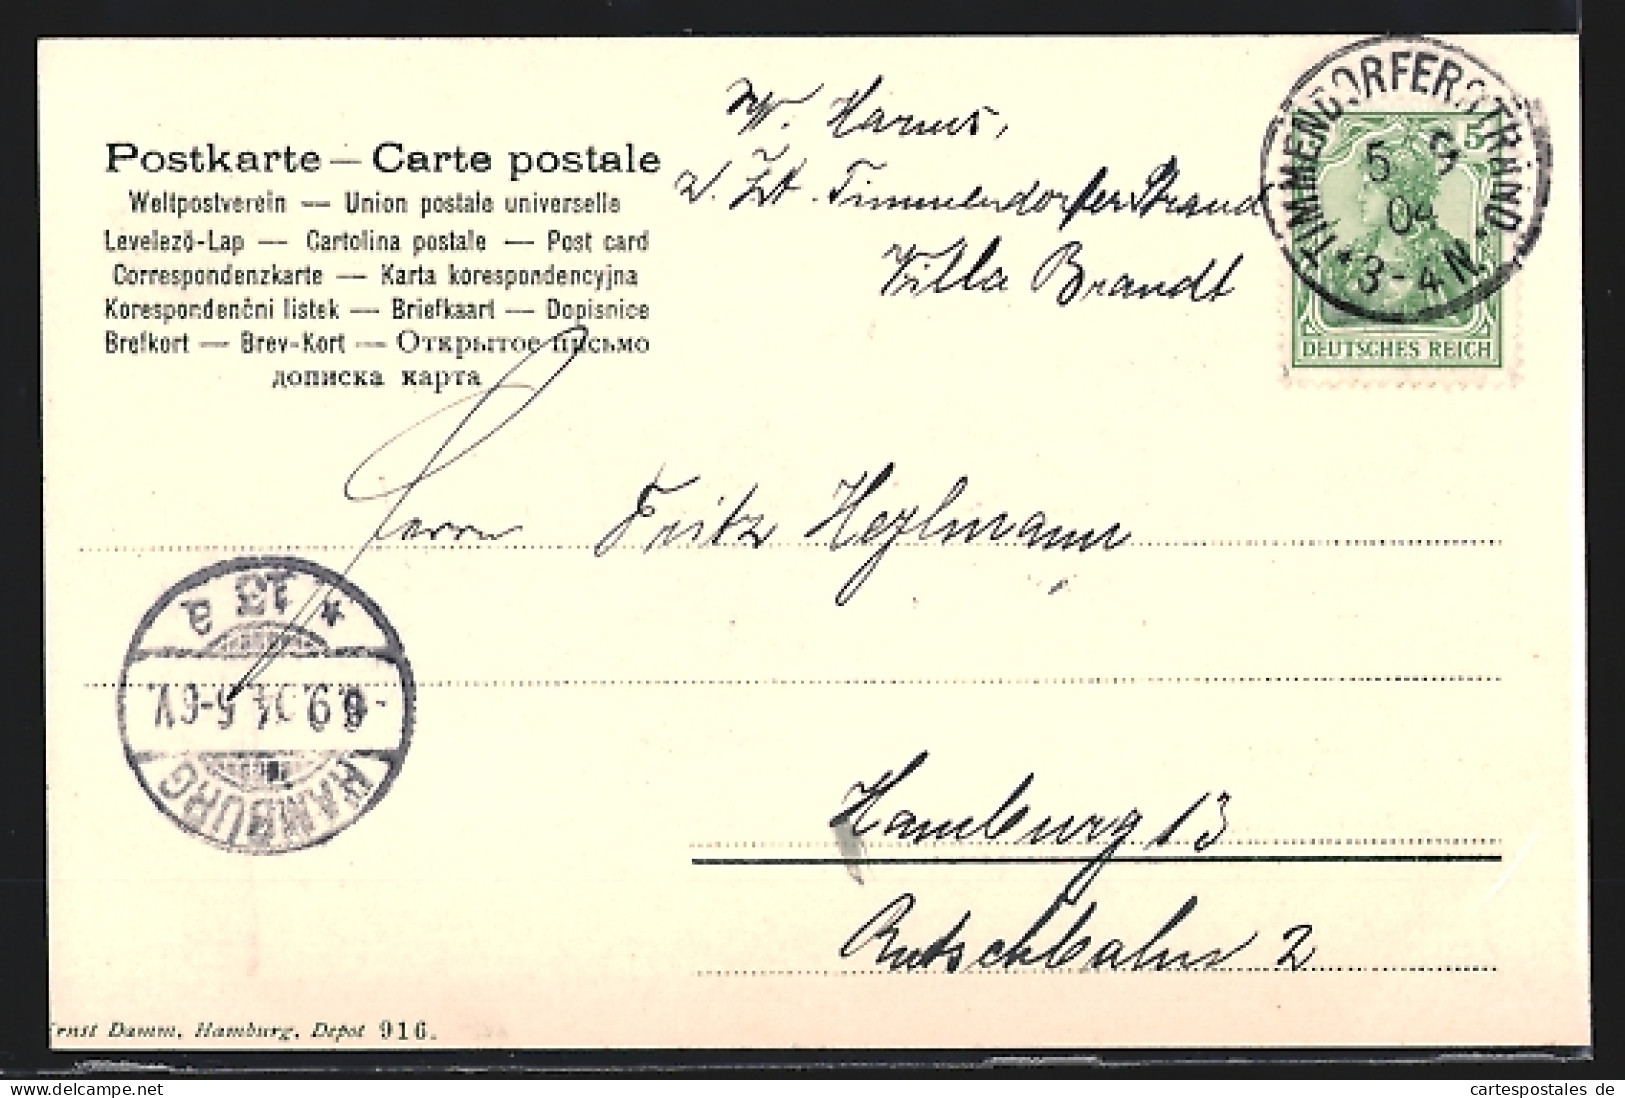 Postkarte — Carte postale
Weltpostverein — Union postale universelle
Levelező-Lap — Cartolina postale — Post card
Correspondenzkarte — Karta korespondencyjna
Korespondenčni listek — Briefkaart — Dopisnice
Brefkort — Brev-Kort — Открытое письмо
дописка карта
W. Harms,
z. Zt. Timmendorfer Strand
Villa Brandt
TIMMENDORFER STRAND
5 9
04
*3-4N.*
5
DEUTSCHES REICH
Herrn Fritz
Hamburg 13
Rutschbahn 2
* 13 a
6.9.04. 5-6V.
HAMBURG
Ernst Damm, Hamburg, Depot 916.
delcampe.net
cartespostales de